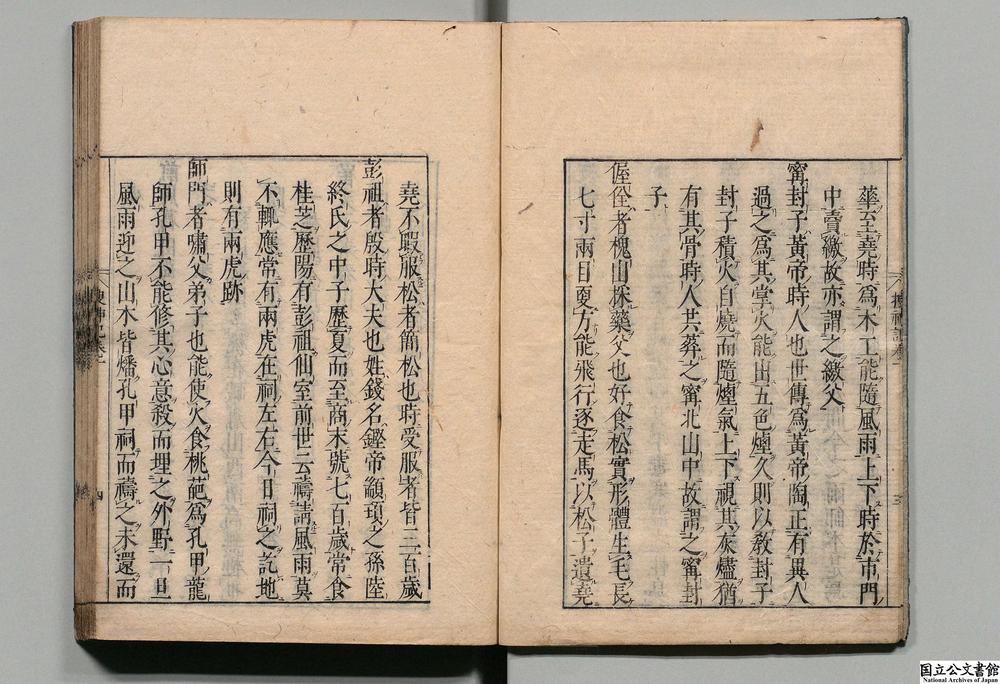 華至堯時爲木工能隨風雨上下時於市門
中賣繳故亦謂之繳父
甯封子黃帝時人也世傳爲黃帝陶正有異人
過之爲其掌火能出五色煙久則以敎封子
封子積火自燒而隨煙氣上下視其灰燼猶
有其骨時人共葬之甯北山中故謂之甯封
子
偓佺者槐山採藥父也好食松實形體生毛長
七寸兩目更方能飛行逐走馬以松子遺堯
堯不暇服松者簡松也時受服者皆三百歲
彭祖者殷時大夫也姓錢名鏗帝顓頊之孫陸
終氏之中子歷夏而至商末號七百歲常食
桂芝歷陽有彭祖仙室前世云禱請風雨莫
不輒應常有兩虎在祠左右今日祠之訖地
則有兩虎跡
師門者嘯父弟子也能使火食桃葩爲孔甲龍
師孔甲不能修其心意殺而埋之外野一旦
風雨迎之山木皆燔孔甲祠而禱之未還而
搜神記卷一
三
搜神記卷一
四
国立公文書館
National Archives of Japan